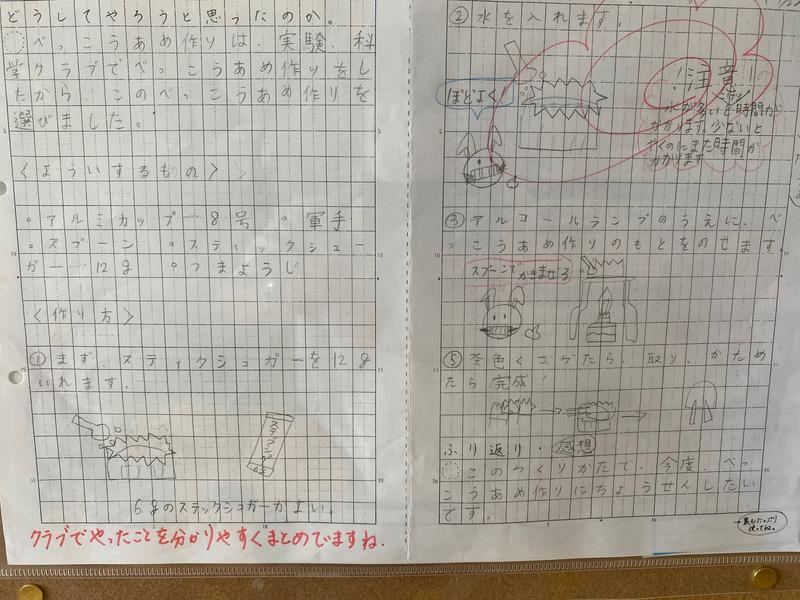 どうしてやろうと思ったのか。
べっこうあめ作りは、実験、科
学クラブでべっこうあめ作りをし
たから、このべっこうあめ作りを
選びました。
<よういするもの>
・アルミカップ…8号 ・軍手
・スプーン ・スティックシュー
ガー…12g ・つまようじ
<作り方>
①まず、スティックシュガーを12g
いれます。
スティックシュガー
6gのステックシュガーがよい。
クラブでやったことを分かりやすくまとめてますね。
②水を入れます。
ほどよく!
!注意!
水が多いと時間が
かかります。少ないと
やくのにまた時間が
かかります
③アルコールランプのうえに、べ
っこうあめ作りのもとをのせます。
スプーンでかきまぜろ
⑤茶色くコゲたら、取り、かため
たら完成!
ふり返り・感想
このつくりかたで、今度、べっ
こうあめ作りにちょうせんしたい
です。
→裏もたっぷり
使ってね。